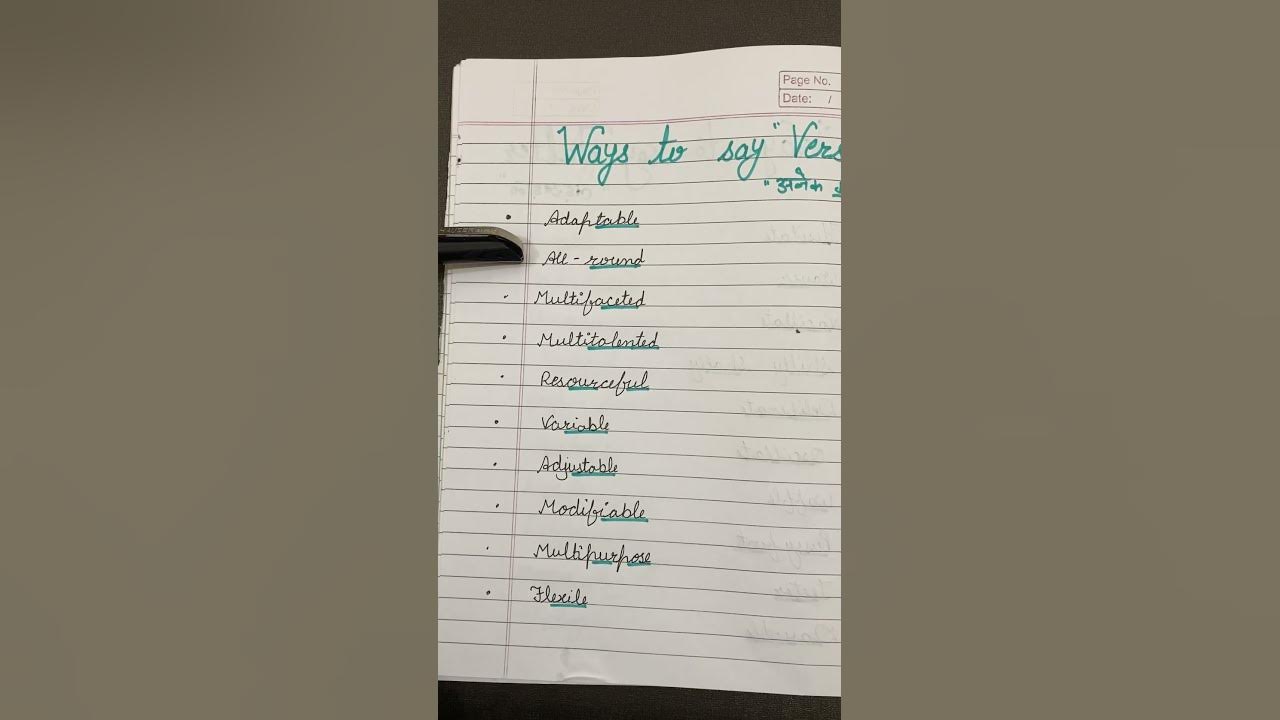 Page No.
Date: /
Ways to say "Vers
"अनेक
• Adaptable
• All-round
• Multifaceted
• Multitalented
• Resourceful
• Variable
• Adjustable
• Modifiable
• Multipurpose
• Flexile